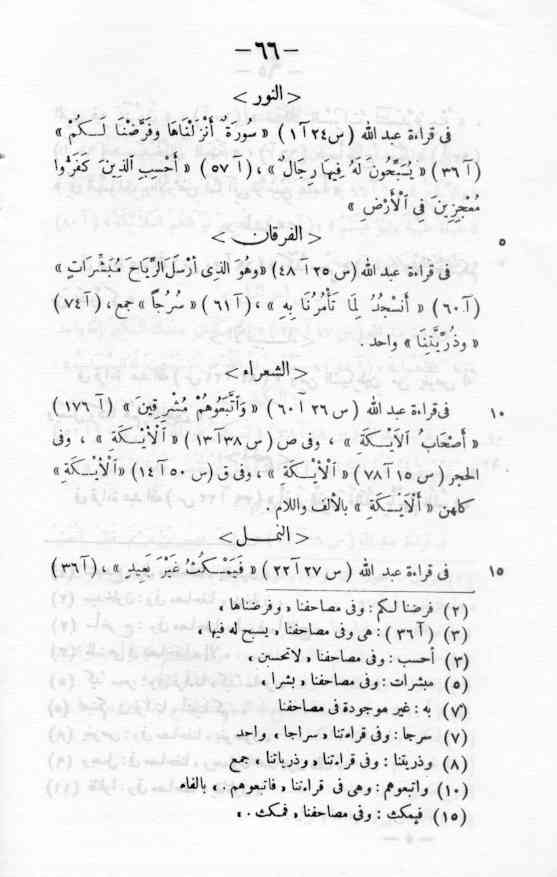 — ٦٦ —
< النور >
فى قراءة عبد الله ( س ٢٤ آ ١ ) « سورَةٌ أَنْزَلْنَاهَا وفَرَّضْنَا لَـكُمْ »
( آ ٣٦ ) « يُسَبِّحُونَ لَهُ فِيهَا رِجَالٌ » ، ( آ ٥٧ ) « أَحَسِبَ الذِينَ كَفَرُوا
مُعْجِزِينَ فِي الْأَرْضِ »
٥ < الفرقان >
فى قراءة عبد الله ( س ٢٥ آ ٤٨ ) « وهُوَ الذِى أرْسَلَ الرِّيَاحَ مُبَشِّرَاتٍ »
( آ ٦٠ ) « أَنسْجُدُ لِمَا تَأْمُرُنَا بِهِ » ، ( آ ٦١ ) « سُرُجًا » جمع ، ( آ ٧٤ )
« وذُرِّيَّتِنَا » واحد .
< الشعراء >
١٠ فى قراءة عبد الله ( س ٢٦ آ ٦٠ ) « وَاتَّبَعُوهُمْ مُشْرِقِينَ » ( آ ١٧٦ )
« أَصْحَابُ الْأَيْـكَةِ » ، وفى ص ( س ٣٨ آ ١٣ ) « الْأَيْـكَةِ » ، وفى
الحجر ( س ١٥ آ ٧٨ ) « الْأَيْـكَةَ » ، وفى ق ( س ٥٠ آ ١٤ ) « الْأَيْـكَةِ »
كلهن « الْأَيْـكَةِ » بالألف واللام .
< النمـل >
١٥ فى قراءة عبد الله ( س ٢٧ آ ٢٢ ) « فَيَمْـكُثُ غَيْرَ بَعِيدٍ » ، ( آ ٣٦ )
(٢) فرضنا لـكم : وفى مصاحفنا « وفرضناها »
(٣) ( آ ٣٦ ) : هى وفى مصاحفنا « يسبح له فيها »
(٣) أحسب : وفى مصاحفنا « لاتحسبن »
(٥) مبشرات : وفى مصاحفنا « بشرا »
(٧) به : غير موجودة فى مصاحفنا
(٧) سرجا : وفى قراءتنا « سراجا » واحد
(٨) وذريتنا : وفى قراءتنا « وذرياتنا » جمع
(١٠) واتبعوهم : وهى فى قراءتنا « فاتبعوهم » بالفاء
(١٥) فيمكث : وفى مصاحفنا « فمكث » .